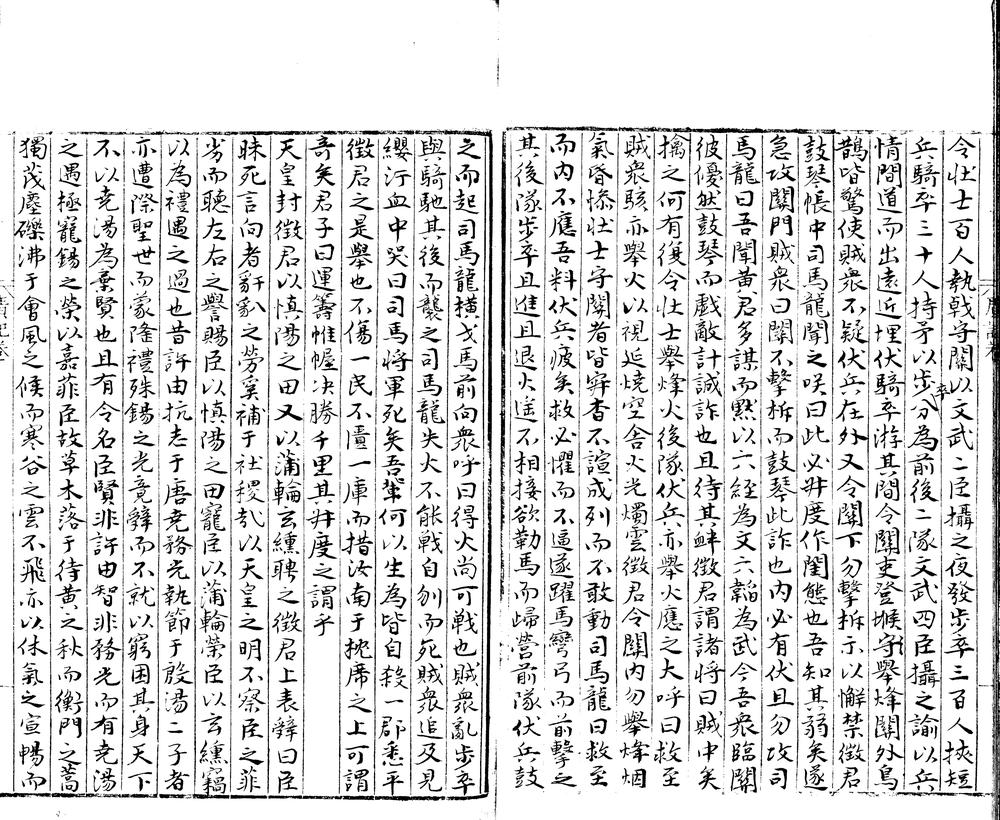 令壯士百人執戟守關以文武二臣攝之夜發步卒三百人挾短
兵騎卒三十人持矛以步卒分為前後二隊文武四臣攝之諭以兵
情間道而出遠近埋伏騎卒游其間令關吏登堠守舉烽關外鳥
鵲皆驚使賊衆不疑伏兵在外又令關下勿擊柝示以懈禁徵君
鼓琴帳中司馬龍聞之笑曰此必井度作閨態也吾知其弱矣遂
急攻關門賊衆曰關不擊柝而鼓琴此詐也內必有伏且勿攻司
馬龍曰吾聞黃君多謀而黙以六經為文六韜為武今吾衆臨關
彼優然鼓琴而戲敵計誠詐也且待其釁徵君謂諸將曰賊中矣
擒之何有復令壯士舉烽火後隊伏兵亦舉火應之大呼曰救至
賊衆駭亦舉火以視延燒空舍火光燭雲徵君令關內勿舉烽烟
氣昏慘壯士守關者皆寧杳不諠成列而不敢動司馬龍曰救至
而內不應吾料伏兵疲矣救必懼而不逼遂躍馬彎弓而前擊之
其後隊步卒且進且退火遙不相接欲勒馬而歸營前隊伏兵鼓
之而起司馬龍橫戈馬前向衆呼曰得火尚可戰也賊衆亂步卒
與騎馳其後而襲之司馬龍失火不能戰自刎而死賊衆追及見
纓汙血中哭曰司馬將軍死矣吾輩何以生為皆自殺一郡悉平
徵君之是舉也不傷一民不匱一庫而措汝南于枕席之上可謂
奇矣君子曰運籌帷幄决勝千里其井度之謂乎
天皇封徵君以慎陽之田又以蒲輪玄纁聘之徵君上表辭曰臣
昧死言向者豺豺之勞奚補于社稷哉以天皇之明不察臣之菲
劣而聽左右之譽賜臣以慎陽之田寵臣以蒲輪榮臣以玄纁竊
以為禮遇之過也昔許由抗志于唐堯務光執節于殷湯二子者
亦遭際聖世而蒙隆禮殊錫之光竟辭而不就以窮困其身天下
不以堯湯為棄賢也且有令名臣賢非許由智非務光而有堯湯
之遇極寵錫之榮以嘉菲臣故草木落于待黃之秋而衡門之蒿
獨茂塵礫沸于會風之候而寒谷之雲不飛亦以休氣之宣暢而